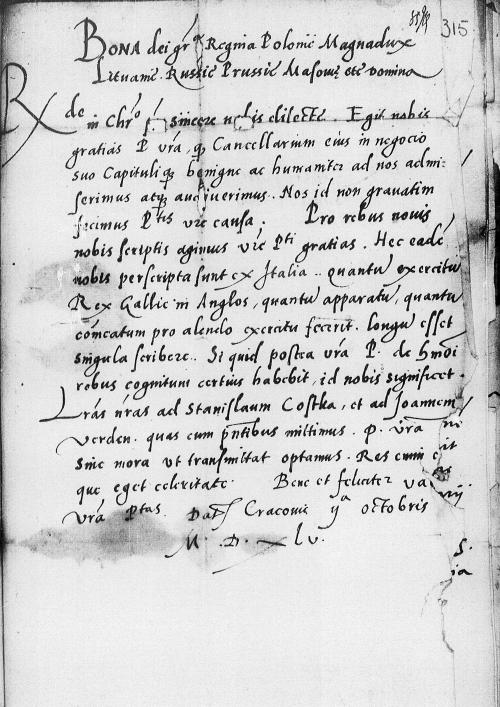 315
BONA dei gra Regina Polonie Magnadux
Lituanie Russie Prussie Masovie etc Domina
Rde in Chro sincere nobis dilecte. Egit nobis
gratias P. vra, q Cancellarium eius in negocio
suo Capitulique benigne ac humaniter ad nos admi-
serimus atque audiverimus. Nos id non gravatim
fecimus Ptis vre causa. Pro rebus novis
nobis scriptis agimus vre Pti gratias. Hec eade
nobis perscripta sunt ex Italia.. quantu exercitu
Rex Gallie in Anglos, quantu apparatu, quantu
comeatum pro alendo exercitu fecerit. longu esset
singula scribere.. Si quid postea vra P. de hmoi
robus cognitum certius habebit, id nobis significet.
Lras nras ad Stanislaum Costka, et ad Joannem
Verden. quas cum pntibus mittimus. P. vra
sine mora ut transmittat optamus. Res enim
que eget celeritate. Bene et feliciter va
vra Ptas. Dat Cracovie ya octobris
M. D. xlv.